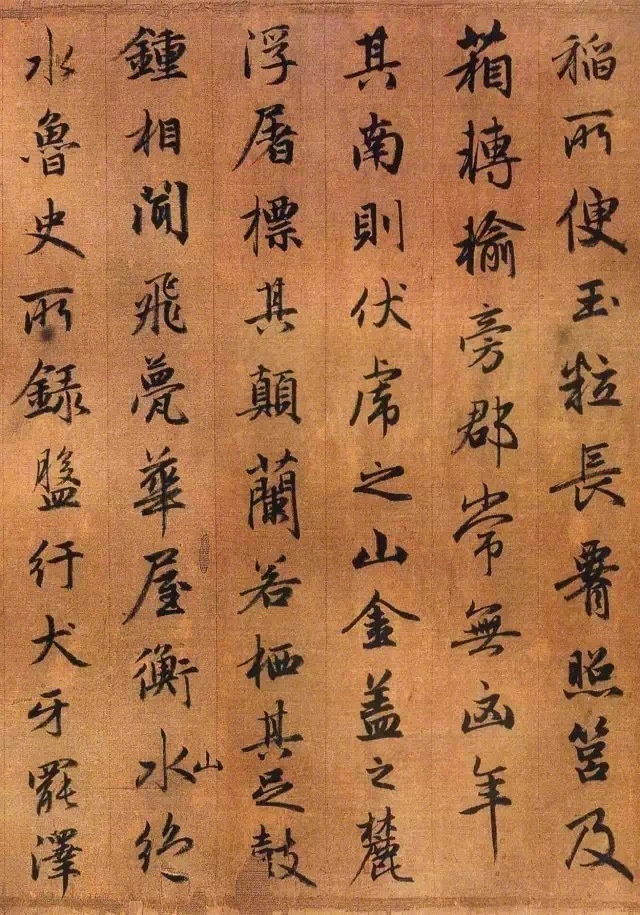 稻所便玉粒長腰照筥及
箱轉輸旁郡常無凶年
其南則伏虎之山金盖之麓
浮屠標其顛蘭若栖其足鼓
鍾相聞飛甍華屋衡水山絶
水魯史所錄盤紆犬牙罷澤